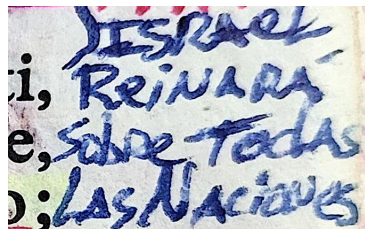 ISRAEL
ti, ReiNARÁ
e, sobre Todas
o; LAS NacioNes